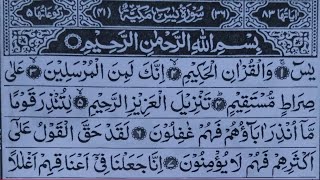 اٰیَاتُهَا ۸۳ (۳۶) سُوْرَةُ یٰسٓ مَكِّیَّةٌ (۴۱) رُكُوْعَاتُهَا ۵
بِسْمِ اللّٰهِ الرَّحْمٰنِ الرَّحِیْمِ
یٰسٓ ۝۱ وَالْقُرْاٰنِ الْحَكِیْمِ ۝۲ اِنَّكَ لَمِنَ الْمُرْسَلِیْنَ ۝۳ عَلٰی
صِرَاطٍ مُّسْتَقِیْمٍ ۝۴ تَنْزِیْلَ الْعَزِیْزِ الرَّحِیْمِ ۝۵ لِتُنْذِرَ قَوْمًا
مَّاۤ اُنْذِرَ اٰبَآؤُهُمْ فَهُمْ غٰفِلُوْنَ ۝۶ لَقَدْ حَقَّ الْقَوْلُ عَلٰۤی
اَكْثَرِهِمْ فَهُمْ لَا یُؤْمِنُوْنَ ۝۷ اِنَّا جَعَلْنَا فِیْۤ اَعْنَاقِهِمْ اَغْلٰلًا